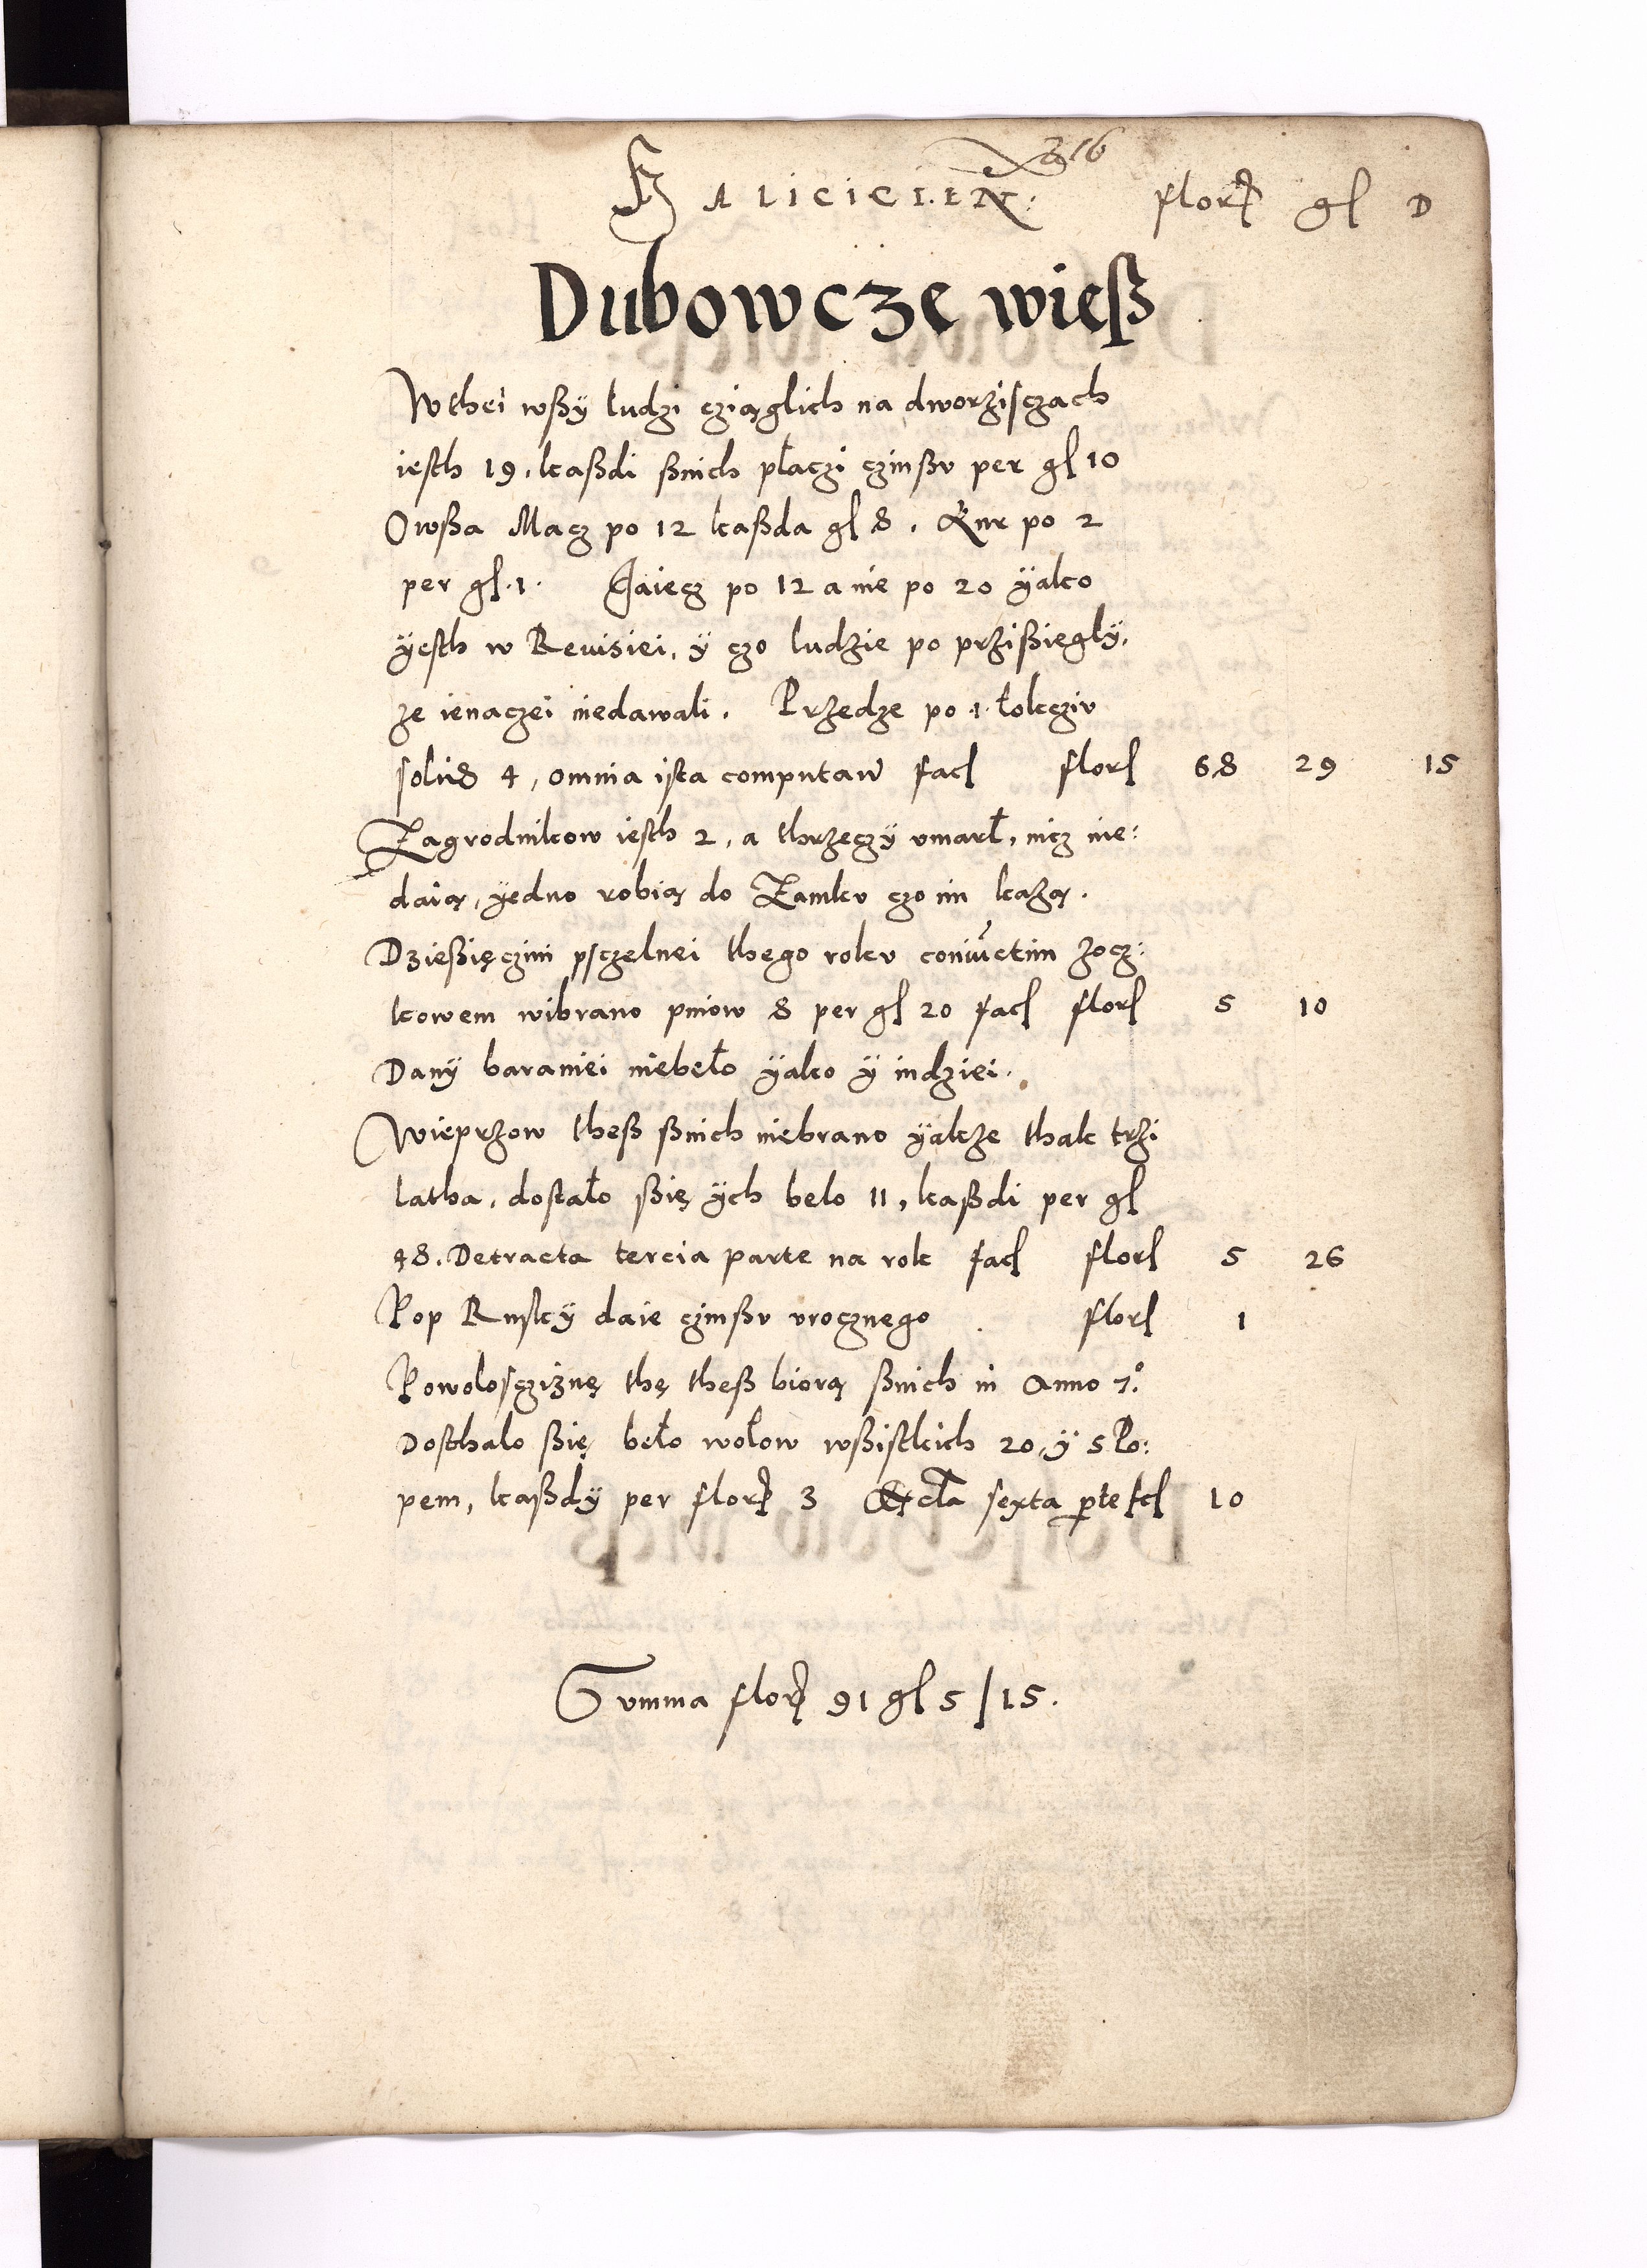 316
Halicien: flor gl D
Dubowcze wieß
W thei wßÿ ludzi cziąglich na dworziſczach
ieſth 19, kaßdi ßnich płaczi czinßv per gl 10
Owßa Macz po 12 kaßda gl 8. Kur po 2
per gl. 1. Jaiecz po 12 a nie po 20 ÿako
ÿeſth w Reuisiei, ÿ czo ludzie po przißiegłÿ,
ze ienaczei niedawali. Przedze po 1. łokcziv
solid 4, omnia iſta computaw facſ florſ 68 29 15
Zagrodnikow ieſth 2, a thrzeczÿ vmarł, nicz nie:
daią, ÿedno robią do Zamkv czo im każą.
Dzießięczini pſczelnei thego rokv zocz:
kowem wibrano pniow 8 per gl 20 facſ florſ 5 10
Danÿ baraniei niebeło ÿako ÿ indziei.
Wieprzow theß ßnich niebrano ÿakże thak trzi
latha, doſtało ßię ÿch belo 11, kaßdi per gl
48. Detracta tercia parte na rok facſ florſ 5 26
Pop Ruſkÿ daie czinßv vrocznego florſ 1
Powoloſcziznę thę theß biorą ßnich in Anno 7º.
Doſthalo ßię beło wołow wßiſtkich 20, ÿ s Po:
pem, kaßdÿ per flor 3 sexta pte fcſ 10
Summa flor 91 gl 5 / 15.